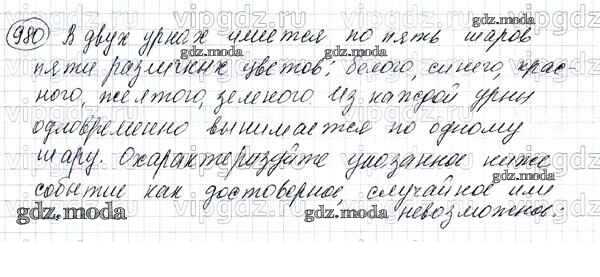 980 В двух урнах имеется по пять шаров
пяти различных цветов: белого, синего, крас
ного, желтого, зеленого. Из каждой урны
одновременно вынимается по одному
шару. Охарактеризуйте указанное ниже
событие как достоверное, случайное или
невозможное: